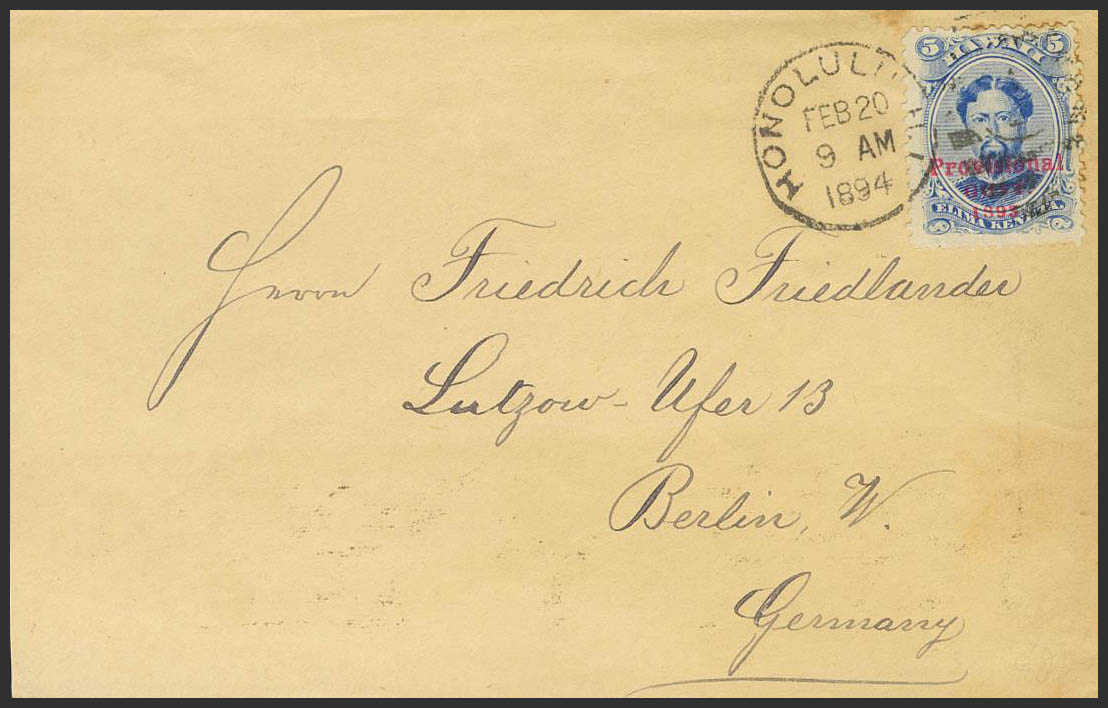 5 HAWAII 5
HONOLULU
FEB 20
9 AM
1894
Provisional
GOVT.
1893
ELIMA KENETA.
Herrn Friedrich Friedlander
Lutzow-Ufer 13
Berlin, W.
Germany